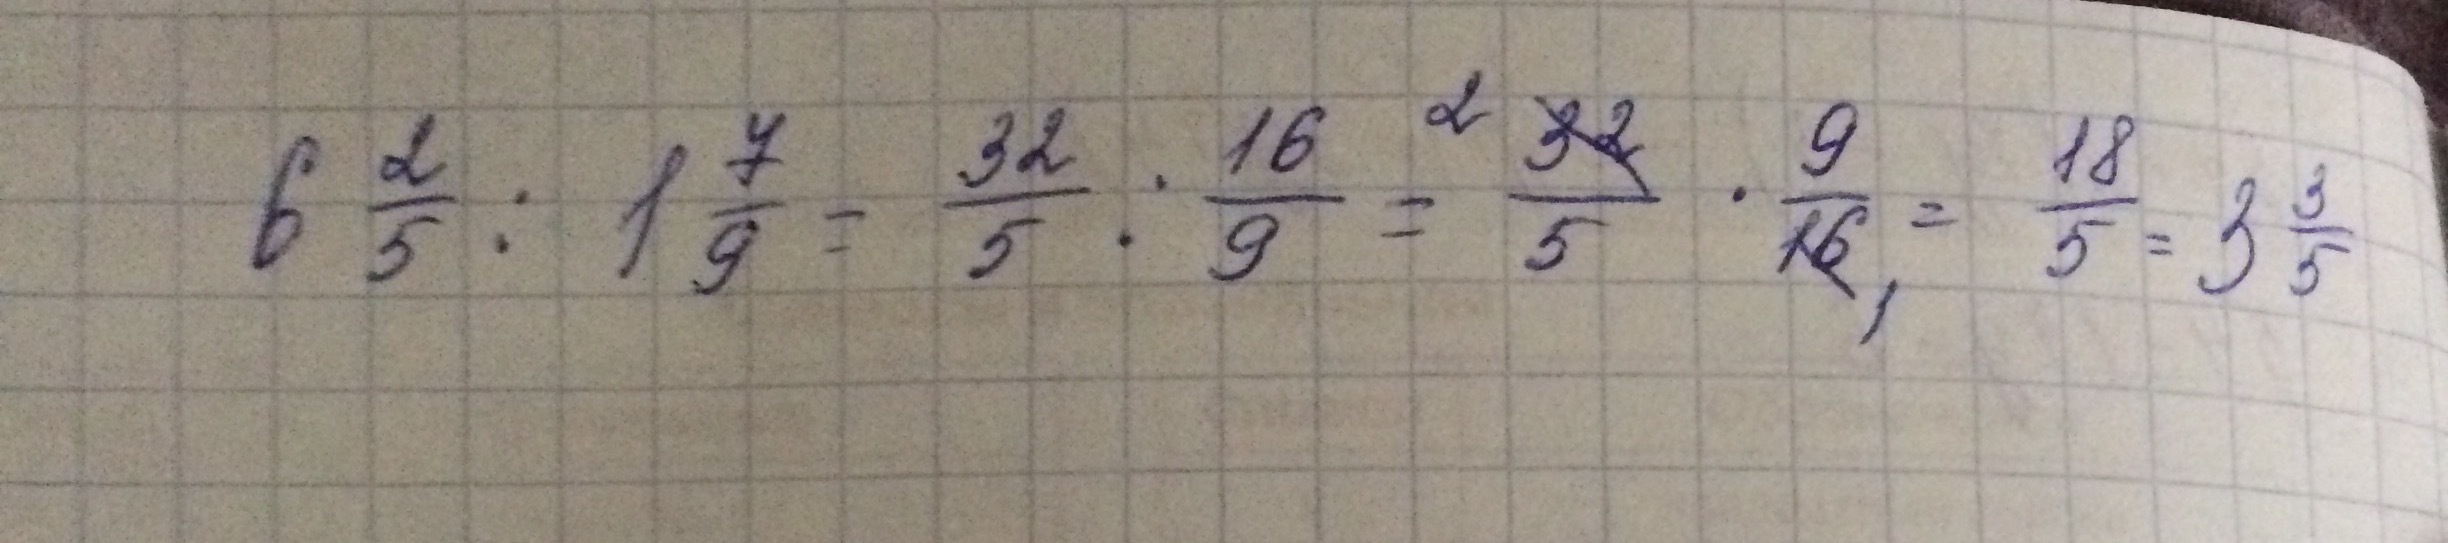 6 2/5 : 1 7/9 = 32/5 : 16/9 = 2 32/5 · 9/16 1 = 18/5 = 3 3/5